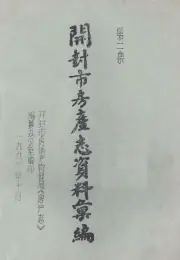 第二集
開封市房產志資料彙編
开封市房地产管理局《房产志》
编纂办公室编印